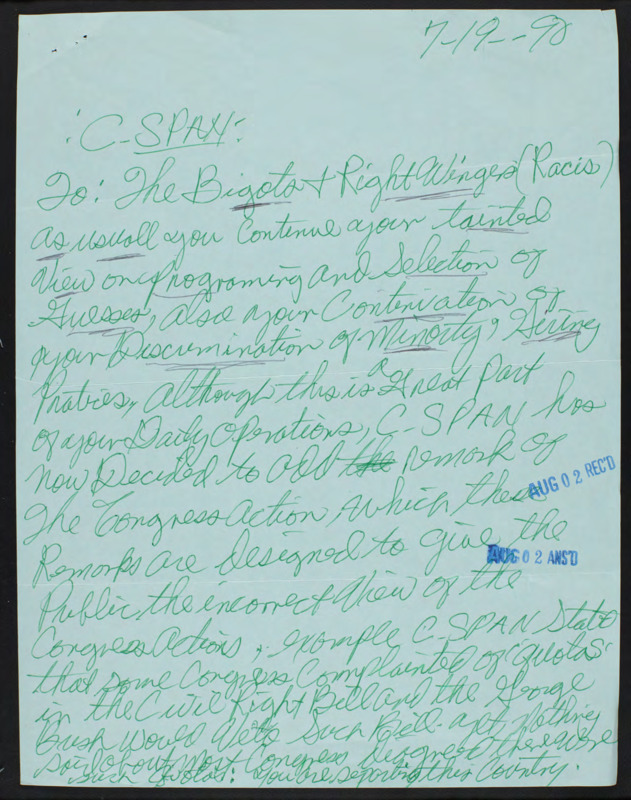 7-19--90
"C-SPAN:
To: The Bigots + Right Wingers (Racis)
as usuall you Continue your tainted
View on programing and Selection of
Guesses, also your Continuation of
your Discrimination of Minority, Hiring
Pratries, although this is a Great Part
of your Daily Operations, C-SPAN has
now Decided to add the remark of
The Congress action, which these
AUG 02 REC'D
Remarks are Designed to give the
AUG 02 ANS'D
Public, the incorrect View of the
Congress Actions, example C-SPAN State
that some Congress Complainted of "quotas"
in the Civil Right Bill and the George
Bush would Veto Such Bill. yet nothing
said about most Congress disagreed there were
such Quotas. You are separating this Country.